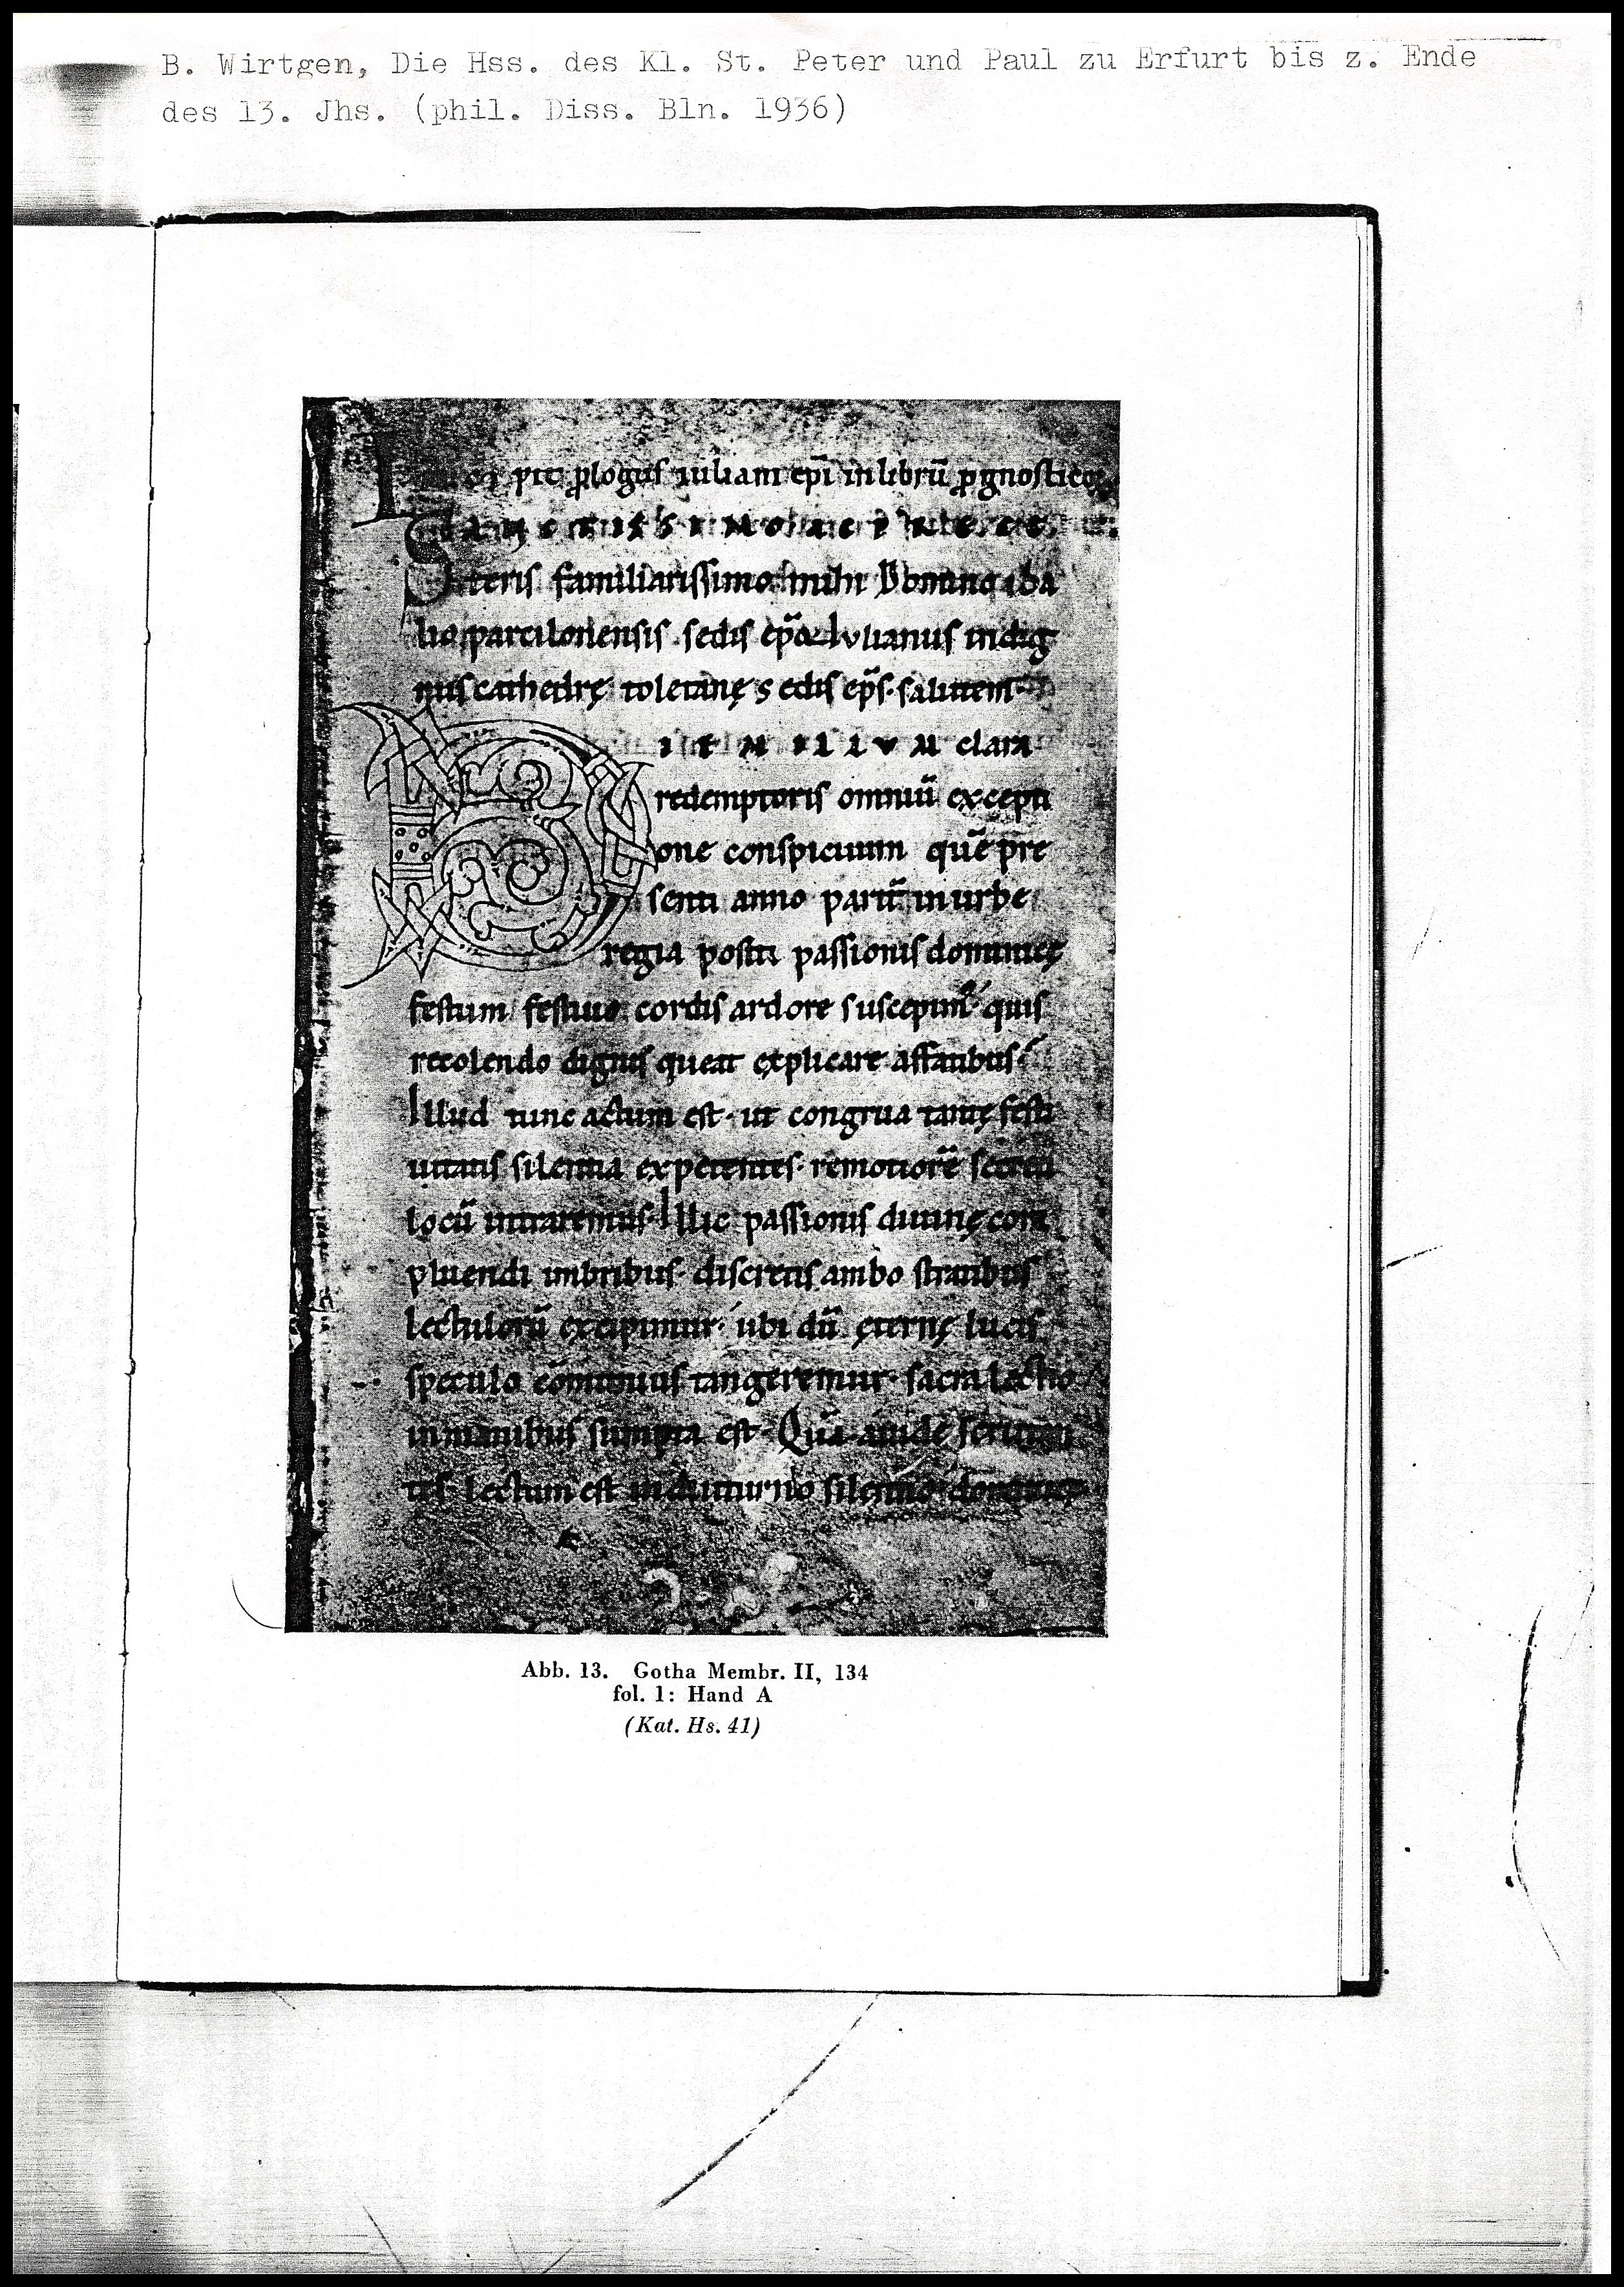 B. Wirtgen, Die Hss. des Kl. St. Peter und Paul zu Erfurt bis z. Ende
des 13. Jhs. (phil. Diss. Bln. 1936)
pit ꝓlogus iuliani ep̄i in librū
teris familiarissimo mihi Domino ida
lio parcilonensis sedis ep̄o Iulianus indig
nus cathedrę toletanę sedis ep̄s. salutem
clara
redemptoris omniū excepti
one conspicuum quē pre
senti anno pariť in urbe
regia positi passionis dominicę
festum festiuo cordis ardore suscepim᷒ quis
recolendo dignis queat explicare affatibus
Illud tunc actum est. ut congrua tantę festi
uitatis silentia expetentes. remotiorē secreti
locū intraremus. Illic passionis diuinę com
pluendi imbribus. discretis ambo stratibus
lectulorū excipimur. ubi dū ęternę lucis
speculo tangeremur. sacra lectio
in manibus sumpta est. Quā
tes. lectum est in diuturno silentio donique
Abb. 13. Gotha Membr. II, 134
fol. 1: Hand A
(Kat. Hs. 41)